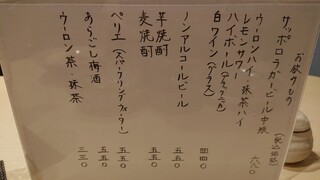 お飲みもの (税込価格)
サッポロラガービール中瓶 六六〇
ウーロンハイ・抹茶ハイ
レモンサワー
ハイボール(ブラックニッカ)
白ワイン(グラス) 四四〇
ノンアルコールビール 五五〇
芋焼酎
麦焼酎 五五〇
ペリエ(スパークリングウォーター) 五五〇
あらごし梅酒 五五〇
ウーロン茶・抹茶 三三〇